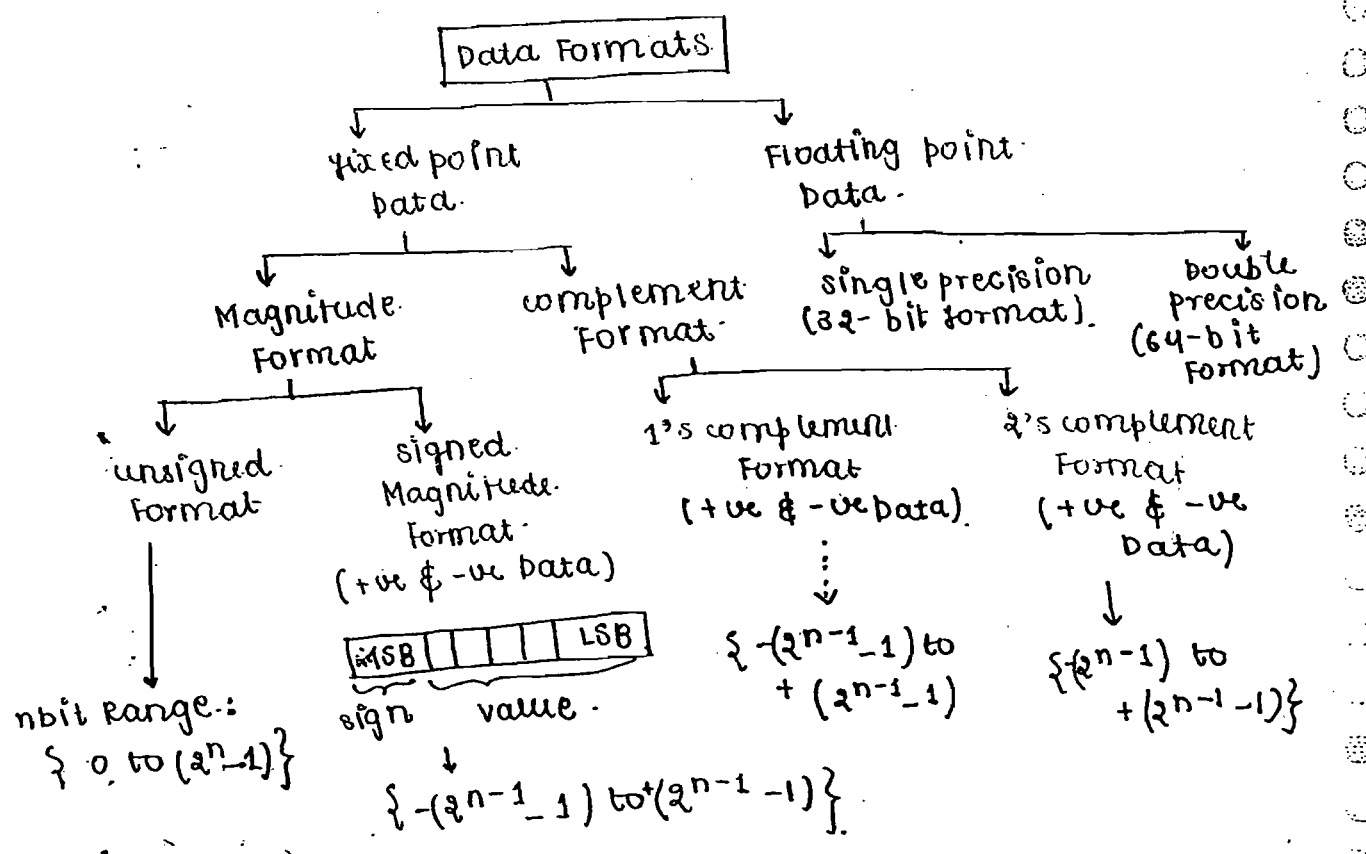 Data Formats
Fixed point
Data.
Floating point
Data.
Magnitude
Format
complement
Format
single precision
(32-bit format).
Double
precision
(64-bit
Format)
unsigned
Format
signed
Magnitude
Format
(+ve & -ve Data)
1's complement
Format
(+ve & -ve Data).
2's complement
Format
(+ve & -ve
Data)
MSB LSB
sign value.
nbit Range:
{ 0 to (2^n-1)}
{ -(2^n-1 - 1) to +(2^n-1 -1)}.
{ -(2^n-1 - 1) to
+ (2^n-1 - 1)
{-(2^n-1) to
+(2^n-1 -1)}